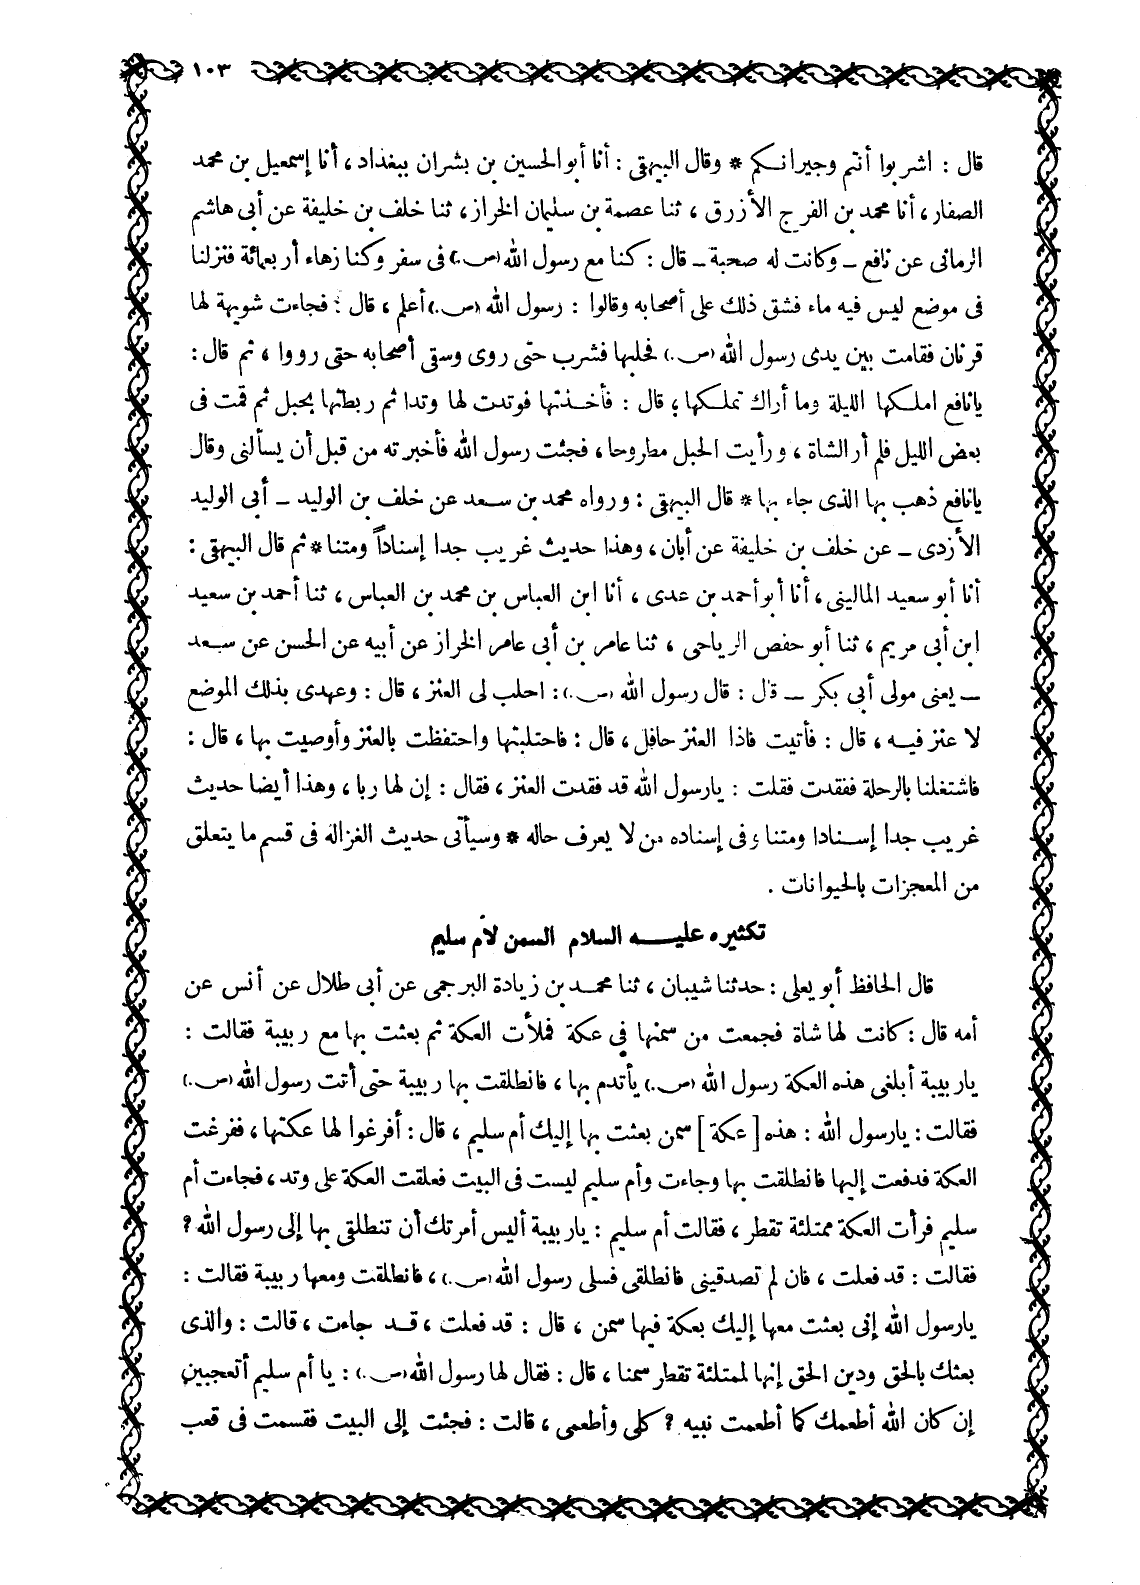 ١٠٣
قال : اشربوا أنتم وجيرانكم * وقال البيهقى : أنا أبو الحسين بن بشران ببغداد ، أنا إسمعيل بن محمد
الصفار ، أنا محمد بن الفرج الأزرق ، ثنا عصمة بن سليمان الخراز ، ثنا خلف بن خليفة عن أبى هاشم
الرمانى عن نافع ــ وكانت له صحبة ــ قال : كنا مع رسول الله (ص.) فى سفر وكنا زهاء أربعمائة فنزلنا
فى موضع ليس فيه ماء فشق ذلك على أصحابه وقالوا : رسول الله (ص.) أعلم ، قال : فجاءت شويهة لها
قرنان فقامت بين يدى رسول الله (ص.) فحلبها فشرب حتى روى وسقى أصحابه حتى رووا ، ثم قال :
يانافع املكها الليلة وما أراك تملكها ؛ قال : فأخذتها فوتدت لها وتدا ثم ربطتها بحبل ثم قمت فى
بعض الليل فلم أر الشاة ، ورأيت الحبل مطروحا ، فجئت رسول الله فأخبرته من قبل أن يسألنى وقال
يانافع ذهب بها الذى جاء بها * قال البيهقى : ورواه محمد بن سعد عن خلف بن الوليد ــ أبى الوليد
الأزدى ــ عن خلف بن خليفة عن أبان ، وهذا حديث غريب جدا إسناداً ومتنا * ثم قال البيهقى :
أنا أبو سعيد المالينى ، أنا أبو أحمد بن عدى ، أنا ابن العباس بن محمد بن العباس ، ثنا أحمد بن سعيد
ابن أبى مريم ، ثنا أبو حفص الرياحى ، ثنا عامر بن أبى عامر الخراز عن أبيه عن الحسن عن سعد
ــ يعنى مولى أبى بكر ــ قال : قال رسول الله (ص.) : احلب لى العنز ، قال : وعهدى بذلك الموضع
لا عنز فيه ، قال : فأتيت فاذا العنز حافل ، قال : فاحتلبتها واحتفظت بالعنز وأوصيت بها ، قال :
فاشتغلنا بالرحلة ففقدت فقلت : يارسول الله قد فقدت العنز ، فقال : إن لها ربا ، وهذا أيضا حديث
غريب جدا إسنادا ومتنا وفى إسناده من لا يعرف حاله * وسيأتى حديث الغزالة فى قسم ما يتعلق
من المعجزات بالحيوانات .
تكثيره عليه السلام السمن لأم سليم
قال الحافظ أبو يعلى : حدثنا شيبان ، ثنا محمد بن زيادة البرجمى عن أبى طلال عن أنس عن
أمه قال : كانت لها شاة فجمعت من سمنها في عكة فملأت العكة ثم بعثت بها مع ربيبة فقالت :
ياربيبة أبلغى هذه العكة رسول الله (ص.) يأتدم بها ، فانطلقت بها ربيبة حتى أتت رسول الله (ص.)
فقالت : يارسول الله : هذه [ عكة ] سمن بعثت بها إليك أم سليم ، قال : أفرغوا لها عكتها ، ففرغت
العكة فدفعت إليها فانطلقت بها وجاءت وأم سليم ليست فى البيت فعلقت العكة على وتد ، فجاءت أم
سليم فرأت العكة ممتلئة تقطر ، فقالت أم سليم : ياربيبة أليس أمرتك أن تنطلقى بها إلى رسول الله ؟
فقالت : قد فعلت ، فان لم تصدقينى فانطلقى فسلى رسول الله (ص.) ، فانطلقت ومعها ربيبة فقالت :
يارسول الله إنى بعثت معها إليك بعكة فيها سمن ، قال : قد فعلت ، قد جاءت ، قالت : والذى
بعثك بالحق ودين الحق إنها لممتلئة تقطر سمنا ، قال : فقال لها رسول الله (ص.) : يا أم سليم أتعجبين
إن كان الله أطعمك كما أطعمت نبيه ؟ كلى وأطعمى ، قالت : فجئت إلى البيت فقسمت فى قعب